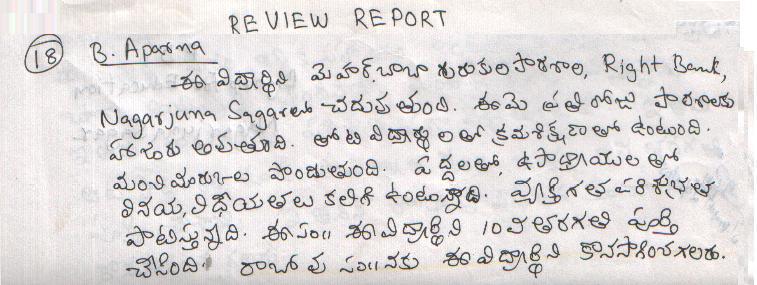 REVIEW REPORT
18 B. Aparna
ఈ విద్యార్థిని మెహర్ బాబా గురుకుల పాఠశాల, Right Bank,
Nagarjuna Sagar లో చదువుతుంది. ఈమె ప్రతి రోజు పాఠశాలకు
హాజరు అవుతూంది. తోటి విద్యార్థులతో క్రమశిక్షణతో ఉంటుంది.
మంచి మార్కులు పొందుతుంది. పెద్దలతో, ఉపాధ్యాయులతో
వినయ, విధేయతలు కలిగి ఉంటున్నాది. వ్యక్తిగత పరిశుభ్రత
పాటిస్తున్నది. ఈ సం॥ ఈ విద్యార్థిని 10వ తరగతి పూర్తి
చేసింది. రాబోవు సం॥నకు ఈ విద్యార్థిని కొనసాగించగలరు.